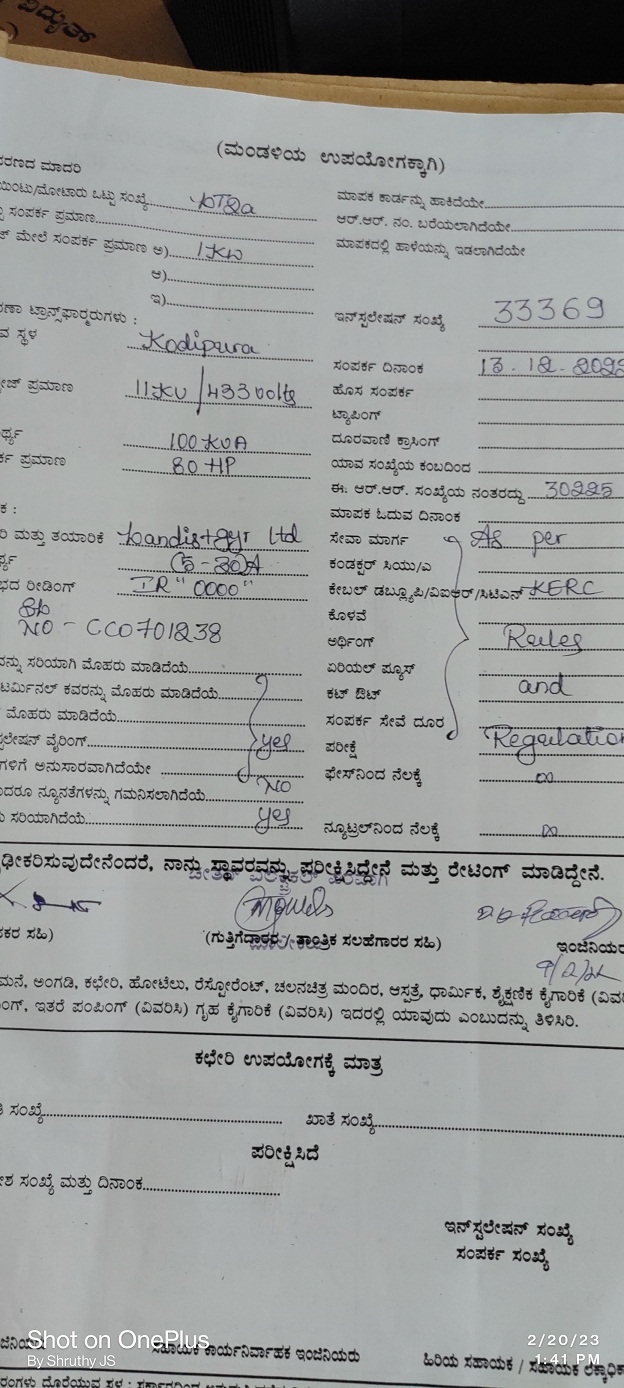 ವಿದ್ಯುತ್
(ಮಂಡಳಿಯ ಉಪಯೋಗಕ್ಕಾಗಿ)
ಮಾದರಿ
ಒಟ್ಟು ಸಂಖ್ಯೆ
ಸಂಪರ್ಕ ಪ್ರಮಾಣ
ಮೇಲೆ ಸಂಪರ್ಕ ಪ್ರಮಾಣ ಅ) 1KW
ಆ)
ಇ)
ಟ್ರಾನ್ಸ್‌ಫಾರ್‍ಮರುಗಳು :
ಸ್ಥಳ Kodipura
ಪ್ರಮಾಣ 11KV/433 volts
100 KVA
ಪ್ರಮಾಣ 80 HP
ಮತ್ತು ತಯಾರಿಕೆ Landis+gyr Ltd
5-30A
ರೀಡಿಂಗ್ IR "0000"
NO - CC0701238
ಸರಿಯಾಗಿ ಮೊಹರು ಮಾಡಿದೆಯೆ
ಕವರನ್ನು ಮೊಹರು ಮಾಡಿದೆಯೆ
ಮೊಹರು ಮಾಡಿದೆಯೆ
ವೈರಿಂಗ್ yes
ಅನುಸಾರವಾಗಿದೆಯೇ
ನ್ಯೂನತೆಗಳನ್ನು ಗಮನಿಸಲಾಗಿದೆಯೆ NO
ಸರಿಯಾಗಿದೆಯೆ yes
ಮಾಪಕ ಕಾರ್ಡನ್ನು ಹಾಕಿದೆಯೇ
ಆರ್.ಆರ್. ನಂ. ಬರೆಯಲಾಗಿದೆಯೇ
ಮಾಪಕದಲ್ಲಿ ಹಾಳೆಯನ್ನು ಇಡಲಾಗಿದೆಯೇ
ಇನ್‌ಸ್ಟಲೇಷನ್ ಸಂಖ್ಯೆ 33369
ಸಂಪರ್ಕ ದಿನಾಂಕ
ಹೊಸ ಸಂಪರ್ಕ
ಟ್ಯಾಪಿಂಗ್
ದೂರವಾಣಿ ಕ್ರಾಸಿಂಗ್
ಯಾವ ಸಂಖ್ಯೆಯ ಕಂಬದಿಂದ
ಈ. ಆರ್.ಆರ್. ಸಂಖ್ಯೆಯ ನಂತರದ್ದು 30225
ಮಾಪಕ ಓದುವ ದಿನಾಂಕ
ಸೇವಾ ಮಾರ್ಗ As per
ಕಂಡಕ್ಟರ್ ಸಿಯು/ಎ
ಕೇಬಲ್ ಡಬ್ಲ್ಯೂಪಿ/ವಿಐಆರ್/ಸಿಟಿಎಸ್ KERC
ಕೊಳವೆ
ಅರ್ಥಿಂಗ್ Rules
ಏರಿಯಲ್ ಫ್ಯೂಸ್
ಕಟ್ ಔಟ್ and
ಸಂಪರ್ಕ ಸೇವೆ ದೂರ
ಪರೀಕ್ಷೆ Regulation
ಫೇಸ್‌ನಿಂದ ನೆಲಕ್ಕೆ ∞
ನ್ಯೂಟ್ರಲ್‌ನಿಂದ ನೆಲಕ್ಕೆ ∞
ನಾನು ಸ್ಥಾವರವನ್ನು ಪರೀಕ್ಷಿಸಿದ್ದೇನೆ ಮತ್ತು ರೇಟಿಂಗ್ ಮಾಡಿದ್ದೇನೆ.
ಸಹಿ) (ಗುತ್ತಿಗೆದಾರರ / ತಾಂತ್ರಿಕ ಸಲಹೆಗಾರರ ಸಹಿ)
ಮನೆ, ಅಂಗಡಿ, ಕಛೇರಿ, ಹೋಟೆಲು, ರೆಸ್ಟೋರೆಂಟ್, ಚಲನಚಿತ್ರ ಮಂದಿರ, ಆಸ್ಪತ್ರೆ, ಧಾರ್ಮಿಕ, ಶೈಕ್ಷಣಿಕ ಕೈಗಾರಿಕೆ
ಇತರೆ ಪಂಪಿಂಗ್ (ವಿವರಿಸಿ) ಗೃಹ ಕೈಗಾರಿಕೆ (ವಿವರಿಸಿ) ಇದರಲ್ಲಿ ಯಾವುದು ಎಂಬುದನ್ನು ತಿಳಿಸಿರಿ.
ಕಛೇರಿ ಉಪಯೋಗಕ್ಕೆ ಮಾತ್ರ
ಸಂಖ್ಯೆ ಖಾತೆ ಸಂಖ್ಯೆ
ಪರೀಕ್ಷಿಸಿದೆ
ಸಂಖ್ಯೆ ಮತ್ತು ದಿನಾಂಕ
ಇನ್‌ಸ್ಟಲೇಷನ್ ಸಂಖ್ಯೆ
ಸಂಪರ್ಕ ಸಂಖ್ಯೆ
ಸಹಾಯಕ ಕಾರ್ಯನಿರ್ವಾಹಕ ಇಂಜಿನಿಯರು
ಹಿರಿಯ ಸಹಾಯಕ / ಸಹಾಯಕ
Shot on OnePlus
By Shruthy JS
2/20/23
1:41 PM